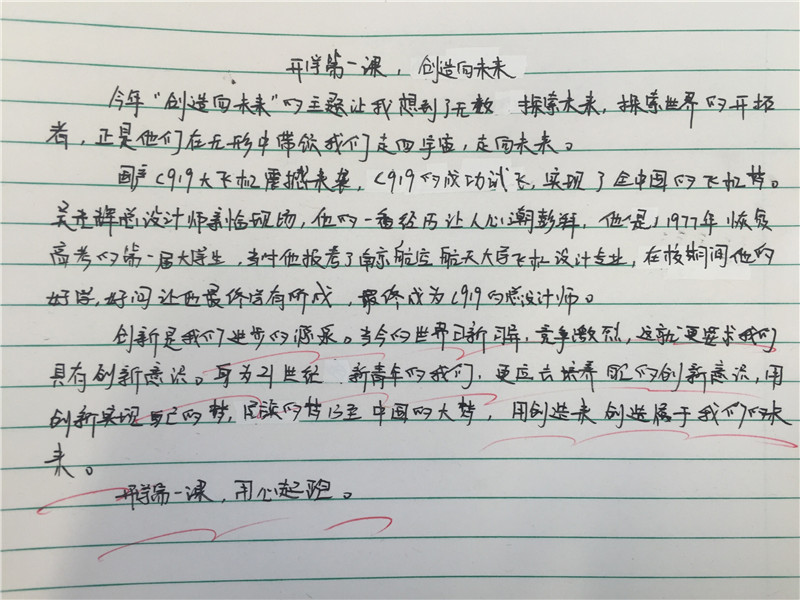 开学第一课，创造向未来
今年“创造向未来”的主题让我想到了无数 探索未来，探索世界的开拓
者，正是他们在无形中带领我们走四宇宙，走向未来。
国产C919大飞机震撼来袭，C919的成功试飞，实现了全中国的飞机梦。
吴光辉总设计师亲临现场，他的一番经历让人心潮彭拜，他是1977年恢复
高考的第一届大学生，当时他报考了南京航空航天大学飞机设计专业，在校期间他的
好学，好问让他最终学有所成，最终成为C919的总设计师。
创新是我们进步的源泉。当今的世界日新月异，竞争激烈，这就更要求我们
具有创新意识。身为21世纪 新青年的我们，更应去培养 的创新意识，用
创新实现自己的梦，民族的梦乃至中国的大梦，用创造来创造属于我们的未
来。
开学第一课，用心起跑。